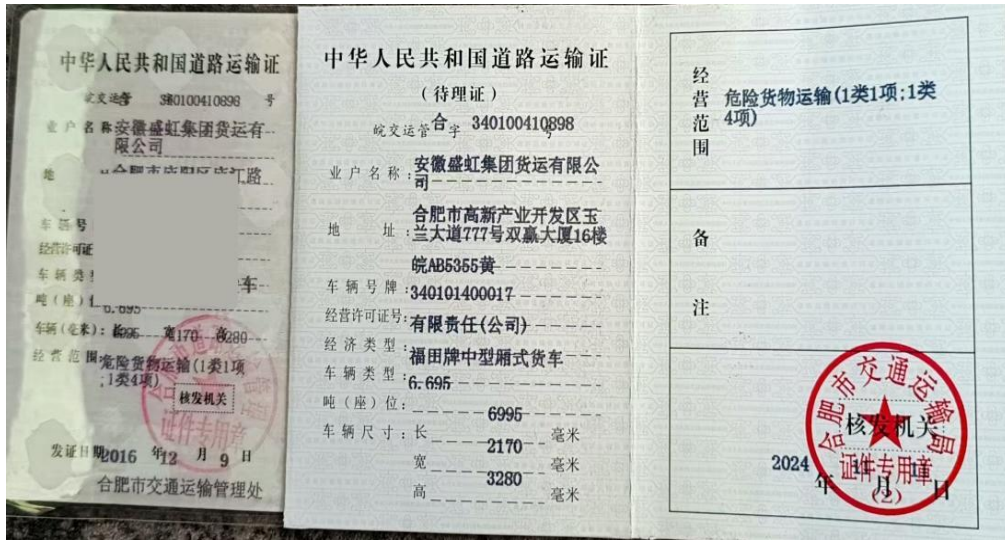 中华人民共和国道路运输证
皖交运管 340100410898 号
业户名称 安徽盛虹集团货运有
限公司
地
车辆号
经营许可证
车辆类 车
吨(座)位 6.695
车辆(毫米):长 6995 宽 2170 高 3280
经营范围 危险货物运输(1类1项
;1类4项)
核发机关
证件专用章
发证日期 2016 年 12 月 9 日
合肥市交通运输管理处
中华人民共和国道路运输证
(待理证)
皖交运管 合 字 340100410898 号
业户名称:安徽盛虹集团货运有限公
司
地 址:合肥市高新产业开发区玉
兰大道777号双赢大厦16楼
皖AB5355黄
车辆号牌:340101400017
经营许可证号:有限责任(公司)
经济类型:福田牌中型厢式货车
车辆类型:6.695
吨(座)位:6995
车辆尺寸:长 2170 毫米
宽 3280 毫米
高 毫米
经营范围
危险货物运输(1类1项;1类
4项)
备注
合肥市交通运输局
核发机关
证件专用章
(2)
2024 年 11 月 1 日